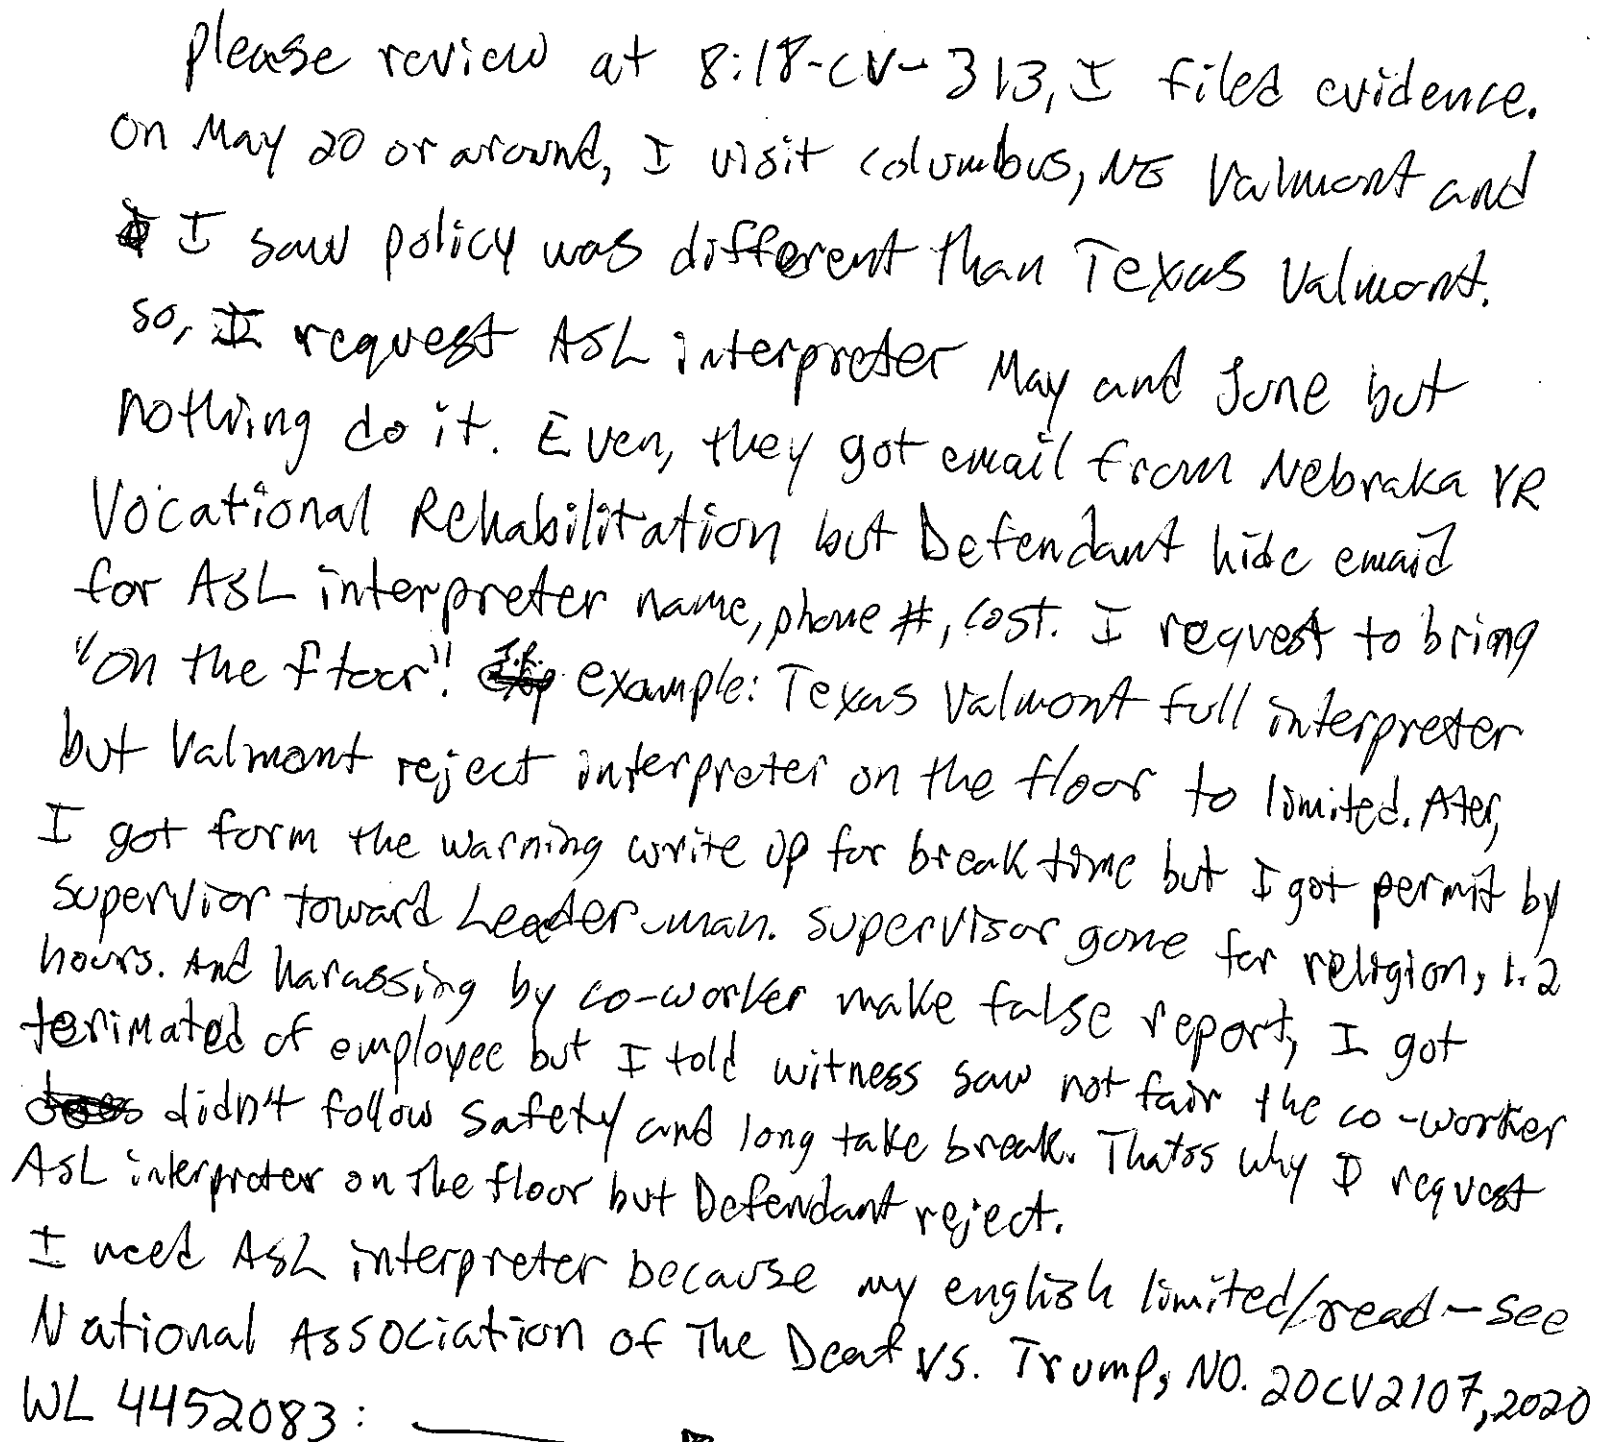 please review at 8:18-cv-313, I filed evidence.
on May 20 or around, I visit columbus, NE Valmont and
I saw policy was different than Texas Valmont.
so, I request ASL interpreter May and June but
nothing do it. Even, they got email from Nebraka VR
Vocational Rehabilitation but Defendant hide email
for ASL interpreter name, phone #, cost. I request to bring
"on the floor"! example: Texas Valmont full interpreter
but Valmont reject interpreter on the floor to limited. Ater,
I got form the warning write up for break time but I got permit by
supervior toward Leader-man. supervisor gone for religion, 1.2
hours. And harassing by co-worker make false report, I got
terimated of employee but I told witness saw not fair the co-worker
didn't follow safety and long take break. Thatss why I request
ASL interpreter on the floor but Defendant reject.
I need ASL interpreter because my english limited/read-see
National Association of The Deaf vs. Trump, NO. 20CV2107, 2020
WL 4452083: